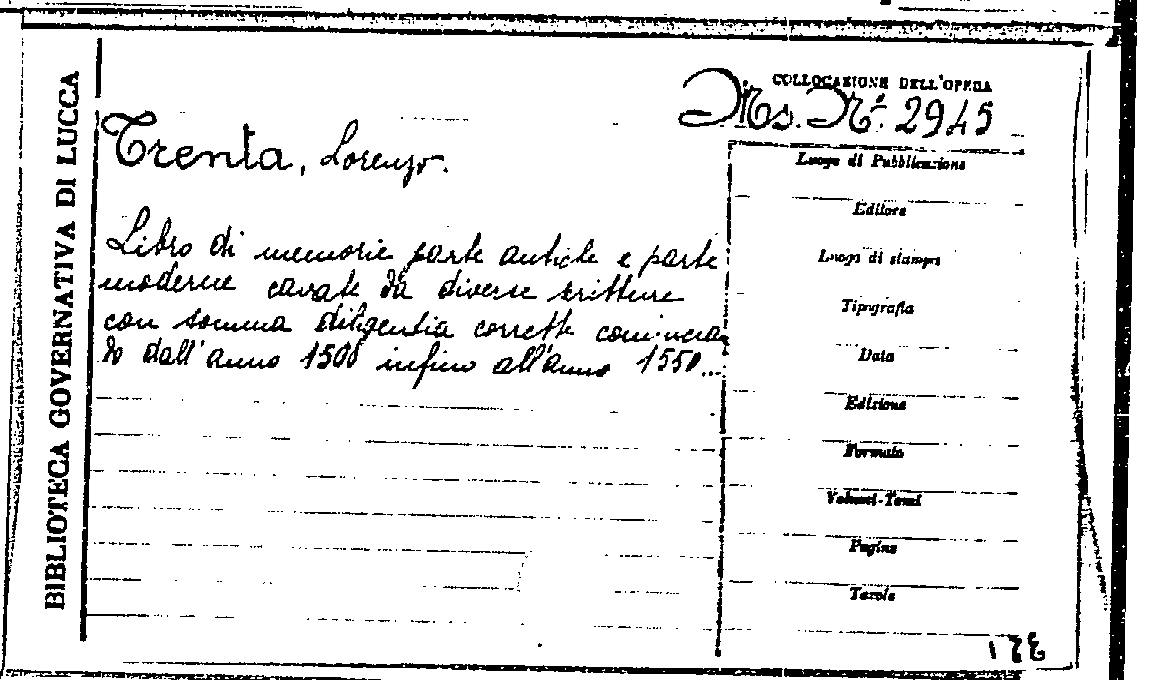 BIBLIOTECA GOVERNATIVA DI LUCCA
COLLOCAZIONE DELL'OPERA
Ms. N.º 2945
Trenta, Lorenzo.
Libro di memorie parte antiche e parte
moderne cavate da diverse scritture
con somma diligentia corrette comincia
to dall'anno 1500 infino all'anno 1550...
Luogo di Pubblicazione
Editore
Luogo di stampa
Tipografia
Data
Edizione
Formato
Volumi-Tomi
Pagine
Tavole